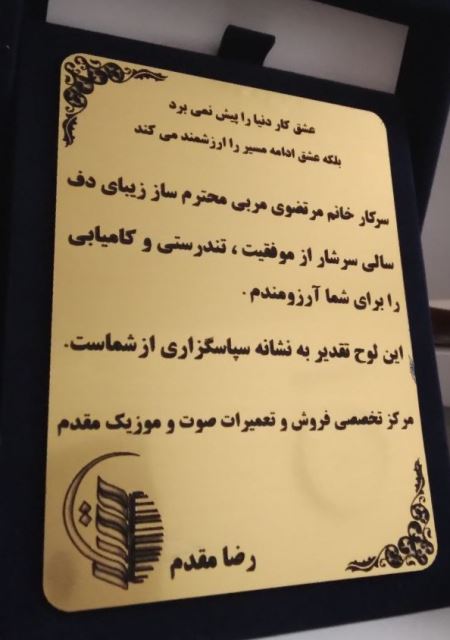 عشق کار دنیا را پیش نمی برد
بلکه عشق ادامه مسیر را ارزشمند می کند
سرکار خانم مرتضوی مربی محترم ساز زیبای دف
سالی سرشار از موفقیت ، تندرستی و کامیابی
را برای شما آرزومندم .
این لوح تقدیر به نشانه سپاسگزاری از شماست.
مرکز تخصصی فروش و تعمیرات صوت و موزیک مقدم
رضا مقدم